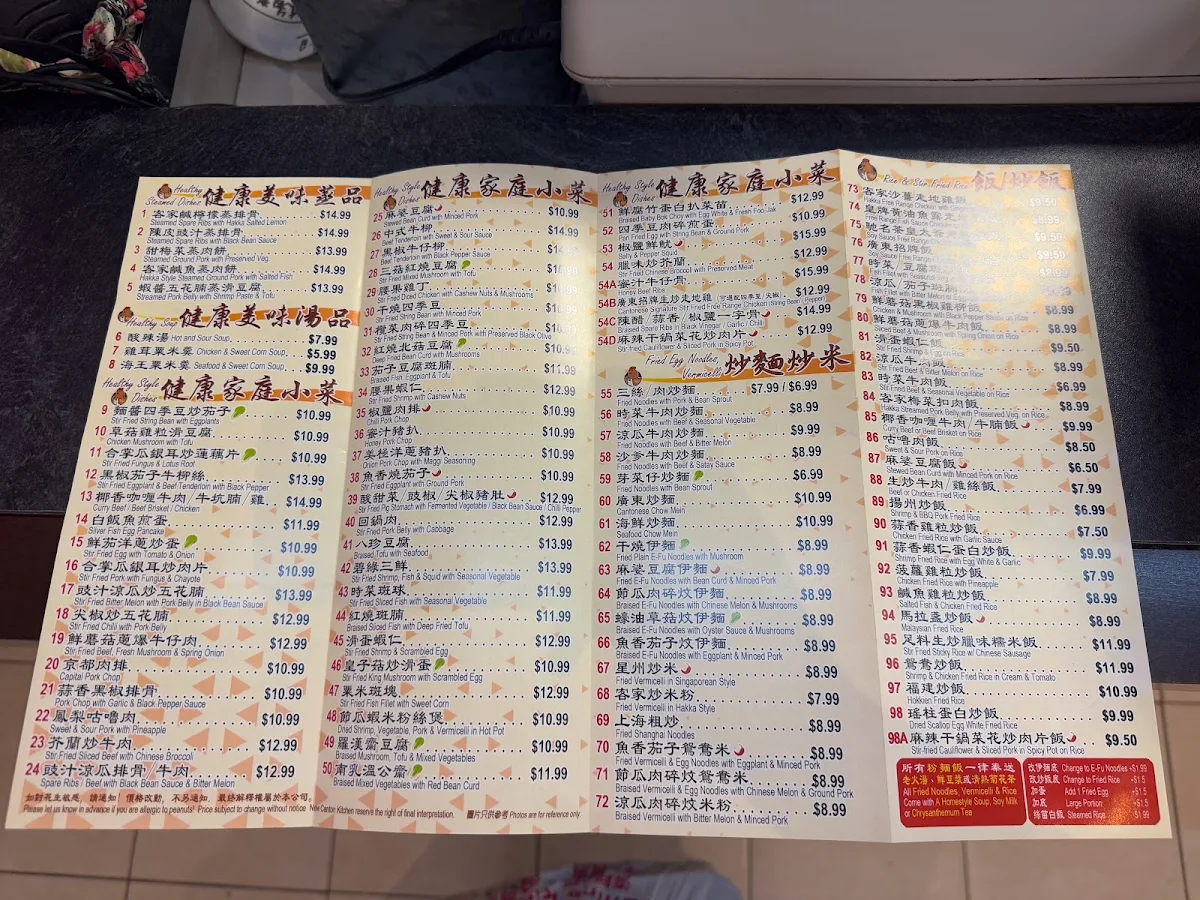 Healthy Steamed Dishes 健康美味蒸品
1 客家鹹檸檬蒸排骨 $14.99
Steamed Spare Ribs with Hakka Salted Lemon
2 陳皮豉汁蒸排骨 $14.99
Steamed Spare Ribs with Black Bean Sauce
3 甜梅菜蒸肉餅 $13.99
Steamed Ground Pork with Preserved Veg.
4 客家鹹魚蒸肉餅 $14.99
Hakka Style Steamed Ground Pork with Salted Fish
5 蝦醬五花腩蒸滑豆腐 $13.99
Streamed Pork Belly with Shrimp Paste & Tofu
Healthy Soup 健康美味湯品
6 酸辣湯 Hot and Sour Soup $7.99
7 雞茸粟米羹 Chicken & Sweet Corn Soup $5.99
8 海王粟米羹 Seafood & Sweet Corn Soup $9.99
Healthy Style Dishes 健康家庭小菜
9 麵醬四季豆炒茄子 $10.99
Stir Fried String Bean with Eggplants
10 草菇雞粒滑豆腐 $10.99
Chicken Mushroom with Tofu
11 合掌瓜銀耳炒蓮藕片 $10.99
Stir Fried Fungus & Lotus Root
12 黑椒茄子牛柳絲 $13.99
Stir Fried Eggplant & Beef Tenderloin with Black Pepper
13 椰香咖喱牛肉/牛坑腩/雞 $14.99
Curry Beef / Beef Brisket / Chicken
14 白飯魚煎蛋 $11.99
Silver Fish Egg Pancake
15 鮮茄洋蔥炒蛋 $10.99
Stir Fried Egg with Tomato & Onion
16 合掌瓜銀耳炒肉片 $10.99
Stir Fried Pork with Fungus & Chayote
17 豉汁涼瓜炒五花腩 $13.99
Stir Fried Bitter Melon with Pork Belly in Black Bean Sauce
18 尖椒炒五花腩 $12.99
Stir Fried Chilli with Pork Belly
19 鮮蘑菇蔥爆牛仔肉 $12.99
Stir Fried Beef, Fresh Mushroom & Spring Onion
20 京都肉排 $10.99
Capital Pork Chop
21 蒜香黑椒排骨 $10.99
Pork Chop with Garlic & Black Pepper Sauce
22 鳳梨咕嚕肉 $10.99
Sweet & Sour Pork with Pineapple
23 芥蘭炒牛肉 $12.99
Stir Fried Sliced Beef with Chinese Broccoli
24 豉汁涼瓜排骨/牛肉 $12.99
Spare Ribs / Beef with Black Bean Sauce & Bitter Melon
Healthy Style Dishes 健康家庭小菜
25 麻婆豆腐 $10.99
Stewed Bean Curd with Minced Pork
26 中式牛柳 $14.99
Beef Tenderloin with Sweet & Sour Sauce
27 黑椒牛仔柳 $14.99
Beef Tenderloin with Black Pepper Sauce
28 三菇紅燒豆腐
Stir Fried Mixed Mushroom with Tofu
29 腰果雞丁
Stir Fried Diced Chicken with Cashew Nuts & Mushrooms
30 干燒四季豆
Stir Fried String Bean with Minced Pork
31 欖菜肉碎四季豆
Stir Fried String Bean & Minced Pork with Preserved Black Olive
32 紅燒北菇豆腐
Deep Fried Bean Curd with Mushrooms
33 茄子豆腐斑腩 $11.99
Braised Fish, Eggplant & Tofu
34 腰果蝦仁 $12.99
Stir Fried Shrimp with Cashew Nuts
35 椒鹽肉排 $10.99
Chilli Pork Chop
36 蜜汁豬扒 $10.99
Honey Pork Chop
37 美極洋蔥豬扒 $10.99
Onion Pork Chop with Maggi Seasoning
38 魚香燒茄子 $10.99
Stir Fried Eggplant with Ground Pork
39 酸甜菜/豉椒/尖椒豬肚 $12.99
Stir Fried Pig Stomach with Fermented Vegetable / Black Bean Sauce / Chili Pepper
40 回鍋肉 $12.99
Stir Fried Pork Belly with Cabbage
41 八珍豆腐 $13.99
Braised Tofu with Seafood
42 碧綠三鮮 $13.99
Stir Fried Shrimp, Fish & Squid with Seasonal Vegetable
43 時菜斑球 $11.99
Stir Fried Sliced Fish with Seasonal Vegetable
44 紅燒斑腩 $11.99
Braised Sliced Fish with Deep Fried Tofu
45 滑蛋蝦仁 $12.99
Stir Fried Shrimp & Scrambled Egg
46 皇子菇炒滑蛋 $10.99
Stir Fried King Mushroom with Scrambled Egg
47 粟米斑塊 $12.99
Stir Fried Fish Fillet with Sweet Corn
48 節瓜蝦米粉絲煲 $10.99
Dried Shrimp, Vegetable, Pork & Vermicelli in Hot Pot
49 羅漢齋豆腐 $10.99
Braised Mushroom, Tofu & Mixed Vegetables
50 南乳溫公齋 $11.99
Braised Mixed Vegetables with Red Bean Curd
Healthy Style Dishes 健康家庭小菜
51 鮮腐竹蛋白扒菜苗 $12.99
Braised Baby Bok Choy with Egg White & Fresh Foo Jak
52 四季豆肉碎煎蛋 $10.99
Pan Fried Egg with String Bean & Ground Pork
53 椒鹽鮮魷 $15.99
Salty & Pepper Squid
54 臘味炒芥蘭 $12.99
Stir Fried Chinese Broccoli with Preserved Meat
54A 蜜汁牛肋骨 $15.99
Honey Beef Ribs
54B 廣東招牌生炒走地雞 $12.99
Cantonese Signature Stir Fried Free Range Chicken (String Bean / Pepper)
54C 陳醋/蒜香/椒鹽一字骨 $14.99
Braised Spare Ribs in Black Vinegar / Garlic / Chili
54D 麻辣干鍋菜花炒肉片 $12.99
Stir Fried Cauliflower & Sliced Pork in Spicy Pot
Fried Egg Noodles, Vermicelli 炒麵炒米
55 三絲/肉炒麵 $7.99 / $6.99
Fried Noodles with Pork & Bean Sprout
56 時菜牛肉炒麵 $8.99
Fried Noodles with Beef & Seasonal Vegetable
57 涼瓜牛肉炒麵 $9.99
Fried Noodles with Beef & Bitter Melon
58 沙爹牛肉炒麵 $8.99
Fried Noodles with Beef & Satay Sauce
59 芽菜仔炒麵 $6.99
Fried Noodles with Bean Sprout
60 廣東炒麵 $10.99
Cantonese Chow Mein
61 海鮮炒麵 $10.99
Seafood Chow Mein
62 干燒伊麵 $8.99
Fried Plain E-Fu Noodles with Mushroom
63 麻婆豆腐伊麵 $8.99
Fried E-Fu Noodles with Bean Curd & Minced Pork
64 節瓜肉碎炆伊麵 $8.99
Braised E-Fu Noodles with Chinese Melon & Mushrooms
65 蠔油草菇炆伊麵 $8.99
Braised E-Fu Noodles with Oyster Sauce & Mushrooms
66 魚香茄子炒伊麵 $8.99
Braised E-Fu Noodles with Eggplant & Minced Pork
67 星州炒米 $8.99
Fried Vermicelli in Singaporean Style
68 客家炒米粉 $7.99
Fried Vermicelli in Hakka Style
69 上海粗炒 $8.99
Fried Shanghai Noodles
70 魚香茄子鴛鴦米 $8.99
Fried Vermicelli & Egg Noodles with Eggplant & Minced Pork
71 節瓜肉碎炆鴛鴦米 $8.99
Braised Vermicelli & Egg Noodles with Chinese Melon & Ground Pork
72 涼瓜肉碎炆米粉 $8.99
Braised Vermicelli with Bitter Melon & Minced Pork
Rice & Stir Fried Rice 飯/炒飯
73 客家沙薑走地雞飯 $9.50
Hakka Free Range Chicken with
74 皇牌黃油魚露走 $8.99
Free Range Fish Sauce Chicken
75 馳名茶皇走 $9.50
Soy Sauce Free Range
76 廣東招牌飯 $9.50
77 時菜/豆腐
Fish Fillet with Seasonal
78 涼瓜/茄子斑腩
Fish Fillet with Bitter Melon or
79 鮮蘑菇黑椒雞柳飯 $8.99
Chicken & Mushroom with Black Pepper Sauce on
80 鮮蘑菇蔥爆牛肉飯 $8.99
Sliced Beef & Mushroom with Spring Onion on Rice
81 滑蛋蝦仁飯 $9.50
Stir Fried Shrimp & Egg on Rice
82 涼瓜牛肉飯 $8.99
Stir Fried Beef & Bitter Melon on Rice
83 時菜牛肉飯 $6.99
Stir Fried Beef & Seasonal Vegetable on Rice
84 客家梅菜扣肉飯 $8.99
Hakka Streamed Pork Belly with Preserved Veg. on Rice
85 椰香咖喱牛肉/牛腩飯 $9.99
Curry Beef or Beef Brisket on Rice
86 咕嚕肉飯 $8.99
Sweet & Sour Pork on Rice
87 麻婆豆腐飯 $6.50
Stewed Bean Curd with Minced Pork on Rice
88 生炒牛肉/雞絲飯 $7.99
Beef or Chicken Fried Rice
89 揚州炒飯 $6.99
Shrimp & BBQ Pork Fried Rice
90 蒜香雞粒炒飯 $7.50
Chicken Fried Rice with Garlic Sauce
91 蒜香蝦仁蛋白炒飯 $9.99
Shrimp Fried Rice with Egg White & Garlic
92 菠蘿雞粒炒飯 $7.99
Chicken Fried Rice with Pineapple
93 鹹魚雞粒炒飯 $8.99
Salted Fish & Chicken Fried Rice
94 馬拉盞炒飯 $8.99
Malaysian Fried Rice
95 足料生炒臘味糯米飯 $11.99
Stir Fried Sticky Rice w/ Chinese Sausage
96 鴛鴦炒飯 $11.99
Shrimp & Chicken Fried Rice in Cream & Tomato
97 福建炒飯 $10.99
Hokkien Fried Rice
98 瑤柱蛋白炒飯 $9.99
Dried Scallop Egg White Fried Rice
98A 麻辣干鍋菜花炒肉片飯 $9.50
Stir-fried Cauliflower & Sliced Pork in Spicy Pot on Rice
所有粉麵飯一律奉送
老火湯、鮮豆漿或清熱菊花茶
All Fried Noodles, Vermicelli & Rice
Come with A Homestyle Soup, Soy Milk
or Chrysanthemum Tea
改伊麵底 Change to E-Fu Noodles +$1.99
改炒飯底 Change to Fried Rice +$1.5
加蛋 Add 1 Fried Egg +$1.5
加底 Large Portion +$1.5
絲苗白飯 Steamed Rice $1.99
如對花生敏感，請通知！價格改動，不另通知，最終解釋權屬於本公司。
Please let us know in advance if you are allergic to peanuts! Price subject to change without notice. New Canton Kitchen reserve the right of final interpretation. 圖片只供參考 Photos are for reference only.